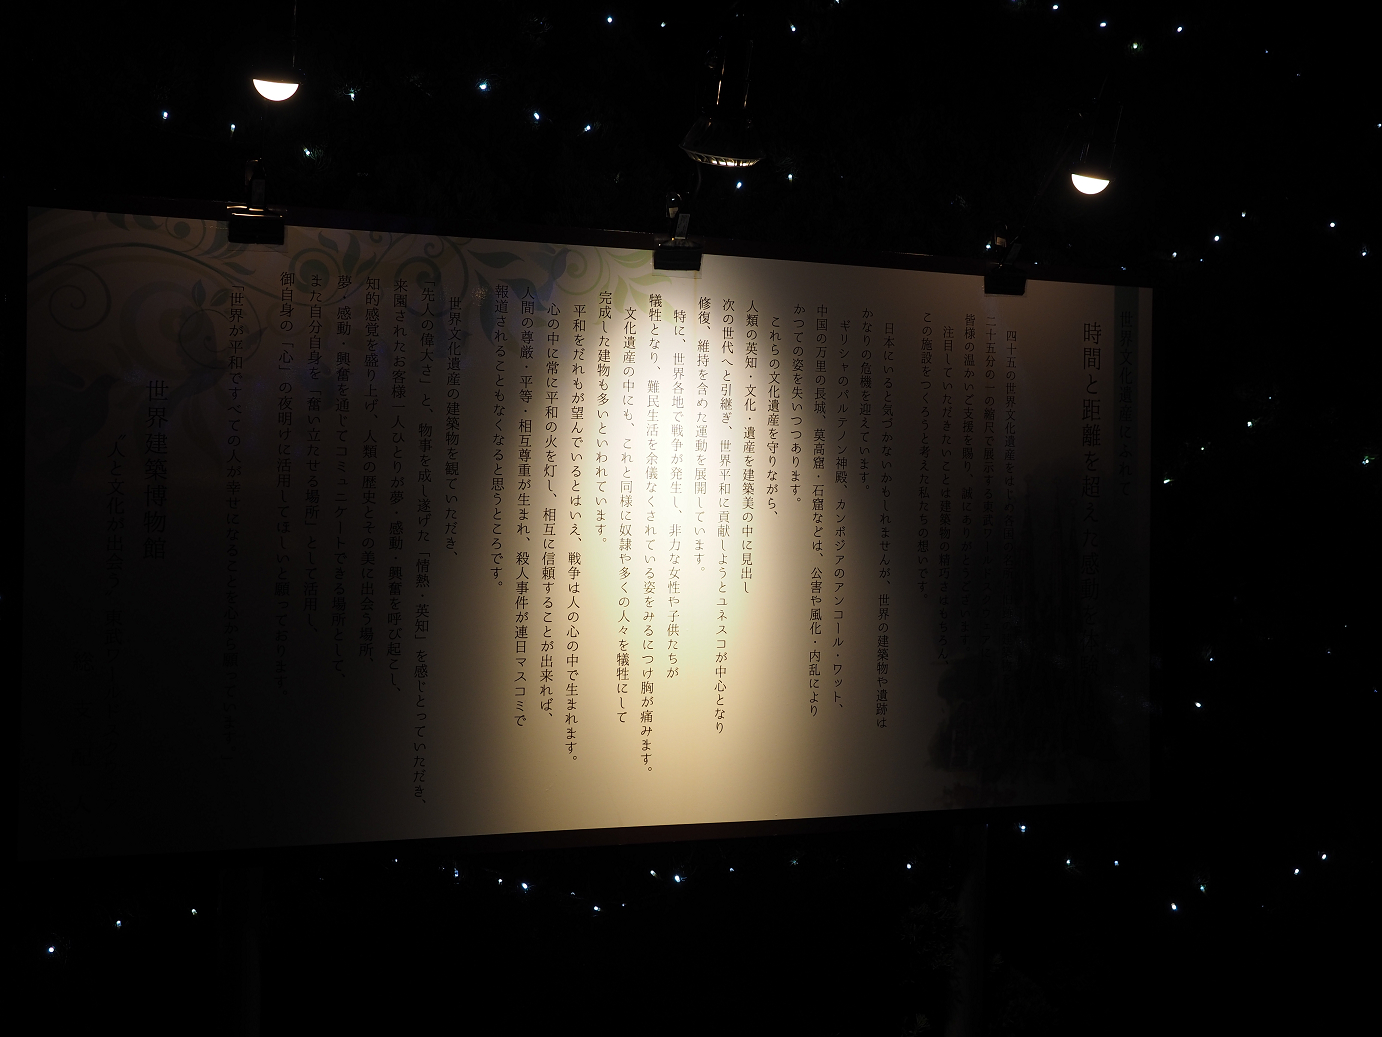 世界文化遺産にふれて
時間と距離を超えた感動を
四十五の世界文化遺産をはじめ各国の
二十五分の一の縮尺で展示する東武
皆様の温かいご支援を賜り、誠にありがとう
注目していただきたいことは建築物の精巧さはもちろん、
この施設をつくろうと考えた私たちの想いです。
日本にいると気づかないかもしれませんが、世界の建築物や遺跡は
かなりの危機を迎えています。
ギリシャのパルテノン神殿、カンボジアのアンコール・ワット、
中国の万里の長城、莫高窟・石窟などは、公害や風化・内乱により
かつての姿を失いつつあります。
これらの文化遺産を守りながら、
人類の英知・文化・遺産を建築美の中に見出し
次の世代へと引継ぎ、世界平和に貢献しようとユネスコが中心となり
修復、維持を含めた運動を展開しています。
特に、世界各地で戦争が発生し、非力な女性や子供たちが
犠牲となり、難民生活を余儀なくされている姿をみるにつけ胸が痛みます。
文化遺産の中にも、これと同様に奴隷や多くの人々を犠牲にして
完成した建物も多いといわれています。
平和をだれもが望んでいるとはいえ、戦争は人の心の中で生まれます。
心の中に常に平和の火を灯し、相互に信頼することが出来れば、
人間の尊厳・平等・相互尊重が生まれ、殺人事件が連日マスコミで
報道されることもなくなると思うところです。
世界文化遺産の建築物を観ていただき、
「先人の偉大さ」と、物事を成し遂げた「情熱・英知」を感じとっていただき、
来園されたお客様一人ひとりが夢・感動・興奮を呼び起こし、
知的感覚を盛り上げ、人類の歴史とその美に出会う場所、
夢・感動・興奮を通じてコミュニケートできる場所として、
また自分自身を「奮い立たせる場所」として活用し、
御自身の「心」の夜明けに活用してほしいと願っております。
「世界が平和ですべての人が幸せになることを心から願っています。」
世界建築博物館